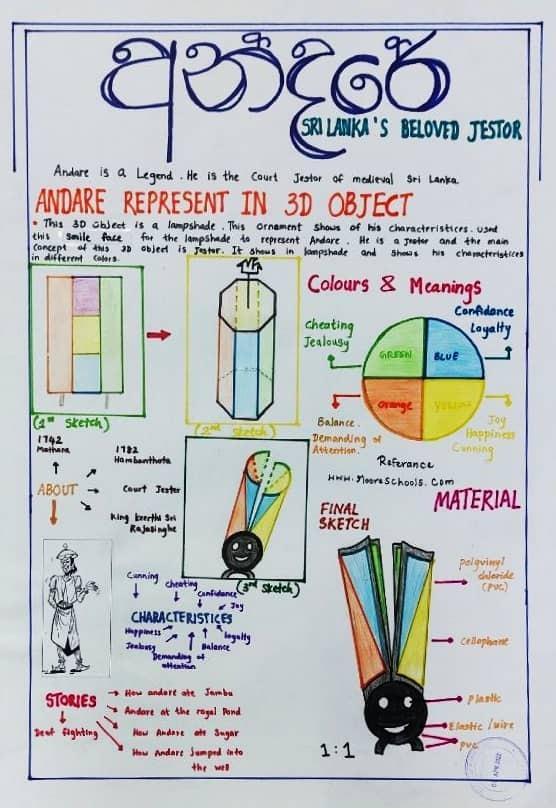 අන්දරේ
SRI LANKA'S BELOVED JESTOR
Andare is a Legend. He is the Court Jestor of medieval Sri Lanka.
ANDARE REPRESENT IN 3D OBJECT
This 3D Object is a lampshade. This ornament shows of his characteristices. Used
this "Smile face" for the lampshade to represent Andare. He is a Jestor and the main
concept of this 3D object is Jestor. It shows in lampshade and shows his characteristices
in different colors.
(1st Sketch)
(2nd Sketch)
Colours & Meanings
Cheating
Jealousy
Confidance
Loyalty
GREEN
BLUE
Orange
YELLOW
Balance.
Demanding of
Attention.
Joy
Happiness
Cunning
Referance
www.MooreSchools.com
1742
Mathara
1782
Hambanthota
ABOUT
Court Jester
King Keerthi Sri
Rajasinghe
(3rd Sketch)
FINAL
SKETCH
MATERIAL
polyvinyl
chloride
(PVC)
cellophane
plastic
Elastic / wire
PVC
1:1
Cunning
Cheating
Confidance
Joy
CHARACTERISTICES
Happiness
Jealousy
Demanding of
attention
Balance
loyalty
STORIES
Deaf fighting
How andare ate Jambu
Andare at the royal Pond
How Andare ate Sugar
How Andare jumped into
the well